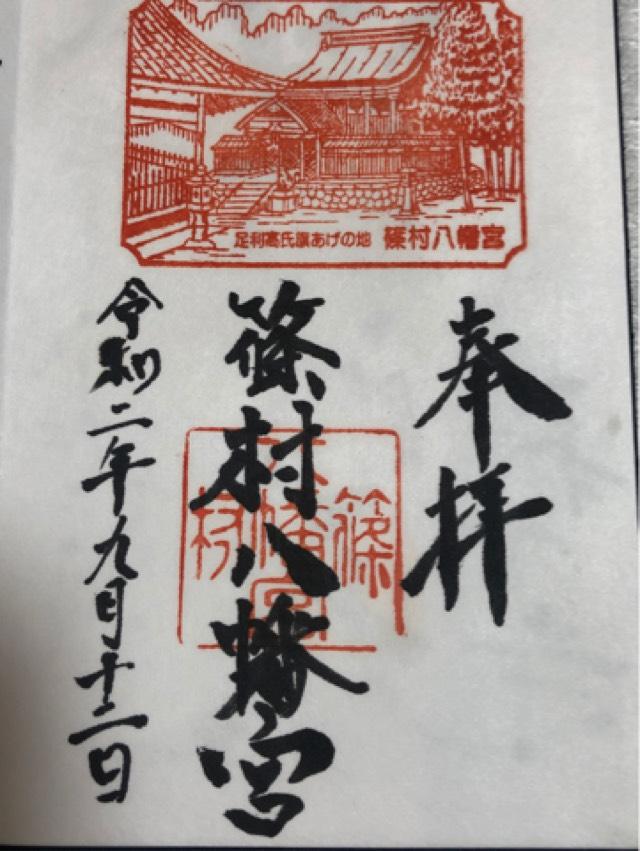 足利高氏旗あげの地 篠村八幡宮
奉拝
篠村八幡宮
篠村八幡宮
令和二年九月十二日